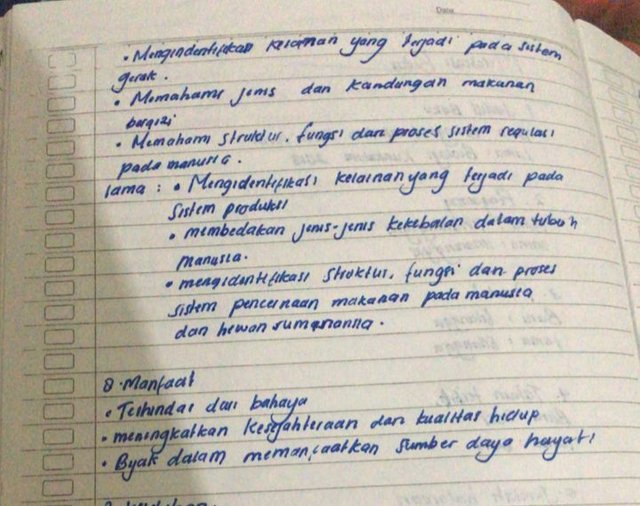 Date
• Mengindentifikasi kelainan yang terjadi pada sistem
gerak.
• Memahami jenis dan kandungan makanan
bergizi
• Memahami struktur, fungsi dan proses sistem regulasi
pada manusia.
lama : • Mengidentifikasi kelainan yang terjadi pada
sistem produksi
• membedakan jenis-jenis kekebalan dalam tubuh
manusia.
• mengidentifikasi struktur, fungsi dan proses
sistem pencernaan makanan pada manusia
dan hewan rumanansia.
8. Manfaat
• Terhindar dari bahaya
• meningkatkan kesejahteraan dan kualitas hidup
• Byak dalam memanfaatkan sumber daya hayati